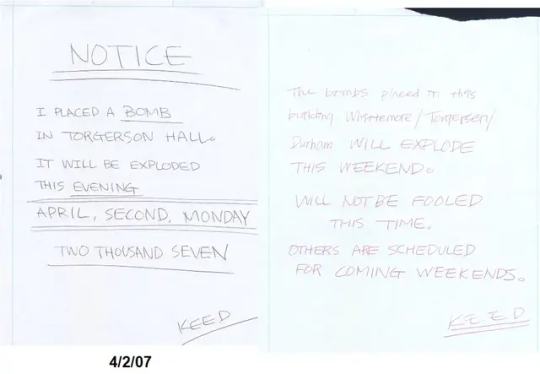 NOTICE
I PLACED A BOMB
IN TORGERSON HALL.
IT WILL BE EXPLODED
THIS EVENING
APRIL, SECOND, MONDAY
TWO THOUSAND SEVEN
KEED
4/2/07
The bombs placed in this
building Whittemore/Torgersen/
Durham WILL EXPLODE
THIS WEEKEND.
WILL NOT BE FOOLED
THIS TIME.
OTHERS ARE SCHEDULED
FOR COMING WEEKENDS.
KEED